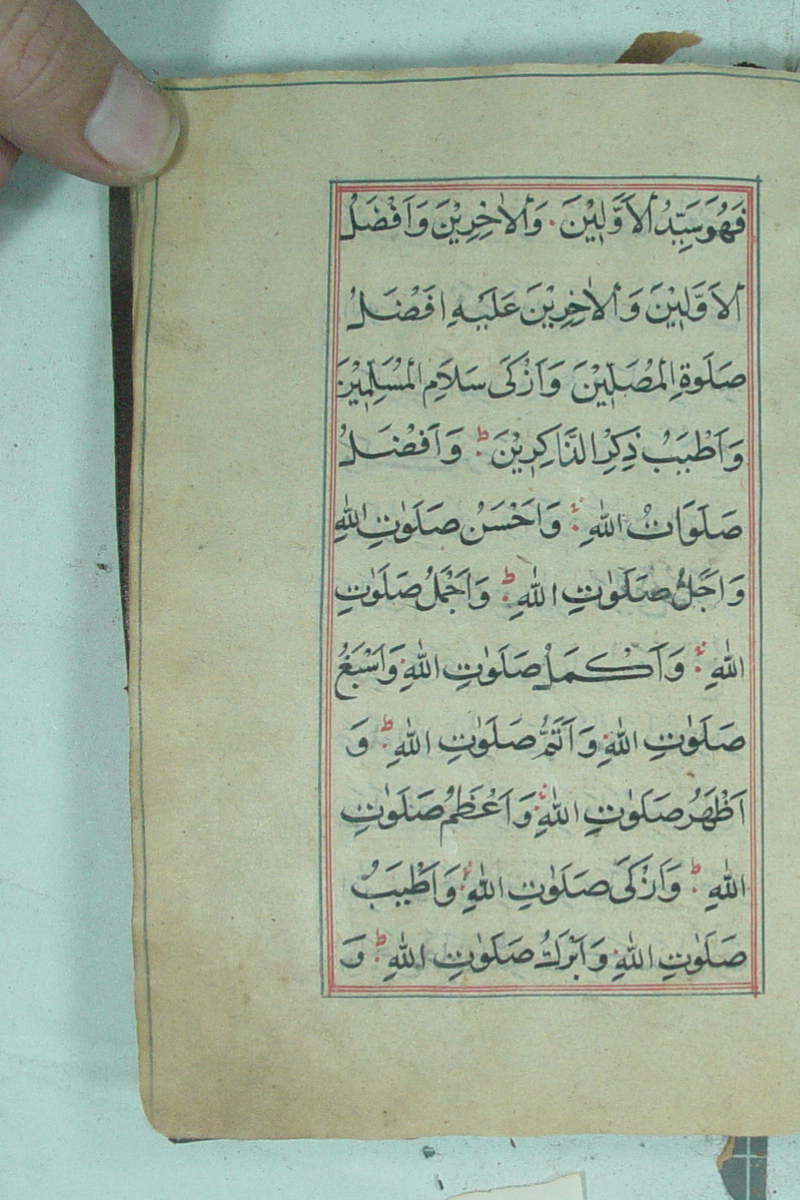 فَهُوَ سَيِّدُ الْاَوَّلِيْنَ وَالْاٰخِرِيْنَ وَاَفْضَلُ
الْاَوَّلِيْنَ وَالْاٰخِرِيْنَ عَلَيْهِ اَفْضَلُ
صَلَوةِ الْمُصَلِّيْنَ وَاَزْكَى سَلَامِ الْمُسَلِّمِيْنَ
وَاَطْيَبُ ذِكْرِ الذَّاكِرِيْنَ ط وَاَفْضَلُ
صَلَوَاتُ اللّٰهِ وَاَحْسَنُ صَلَوٰتِ اللّٰهِ
وَاَجَلُّ صَلَوٰتِ اللّٰهِ ط وَاَجْمَلُ صَلَوٰتِ
اللّٰهِ وَاَكْمَلُ صَلَوٰتِ اللّٰهِ وَاَسْبَغُ
صَلَوٰتِ اللّٰهِ وَاَتَمُّ صَلَوٰتِ اللّٰهِ ط وَ
اَظْهَرُ صَلَوٰتِ اللّٰهِ وَاَعْظَمُ صَلَوٰتِ
اللّٰهِ ط وَاَزْكَى صَلَوٰتِ اللّٰهِ وَاَطْيَبُ
صَلَوٰتِ اللّٰهِ وَاَبْرَكُ صَلَوٰتِ اللّٰهِ ط وَ